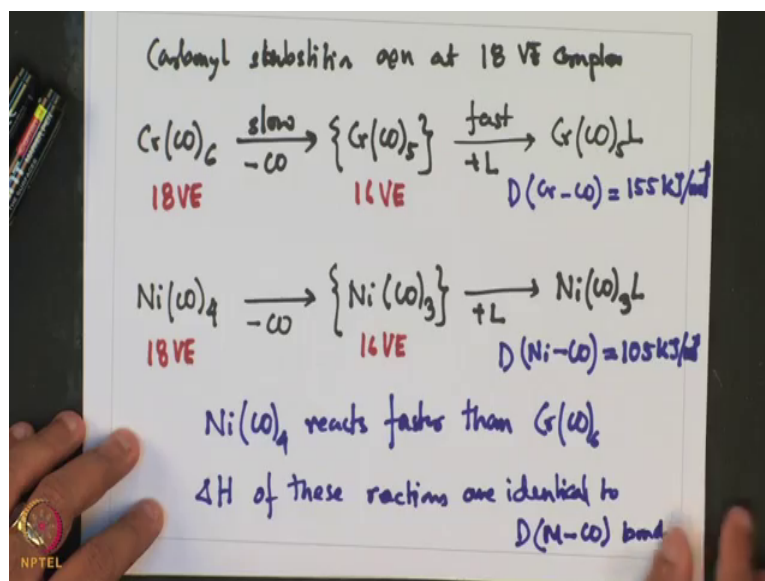 Carbonyl at 18 VE complex
Cr(CO)₆ slow −CO {Cr(CO)₅} fast +L Cr(CO)₅L
18VE 16VE D(Cr−CO) = 155 KJ/mol
Ni(CO)₄ −CO {Ni(CO)₃} +L Ni(CO)₃L
18VE 16VE D(Ni−CO) = 105 KJ/mol
Ni(CO)₄ reacts faster than Cr(CO)₆
ΔH of these reactions are identical to
D(M−CO) bond
NPTEL